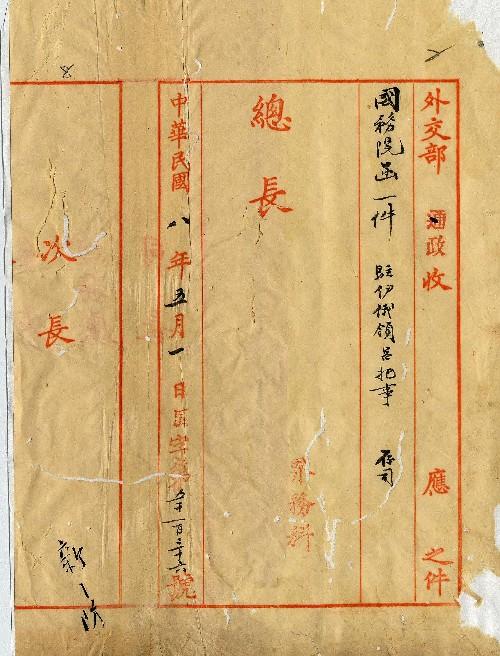 外交部 通政收 應 之件
國務院函一件 駐伊俄領呈把事 存司
總長
界務科
中華民國八年五月一日 字第五千一百三十六號
次長